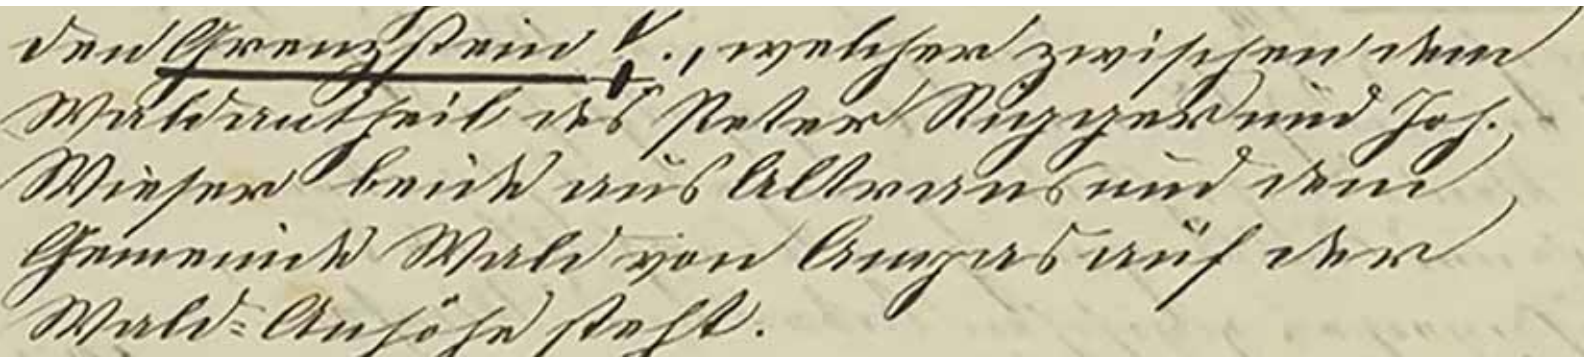 den Grenzstein V., welcher zwischen dem
Waldantheil des Peter Rigger und Joh.
Wieser beide aus Altrans und dem
Gemeinde Wald von Ampas auf der
Wald-Anhöhe steht.